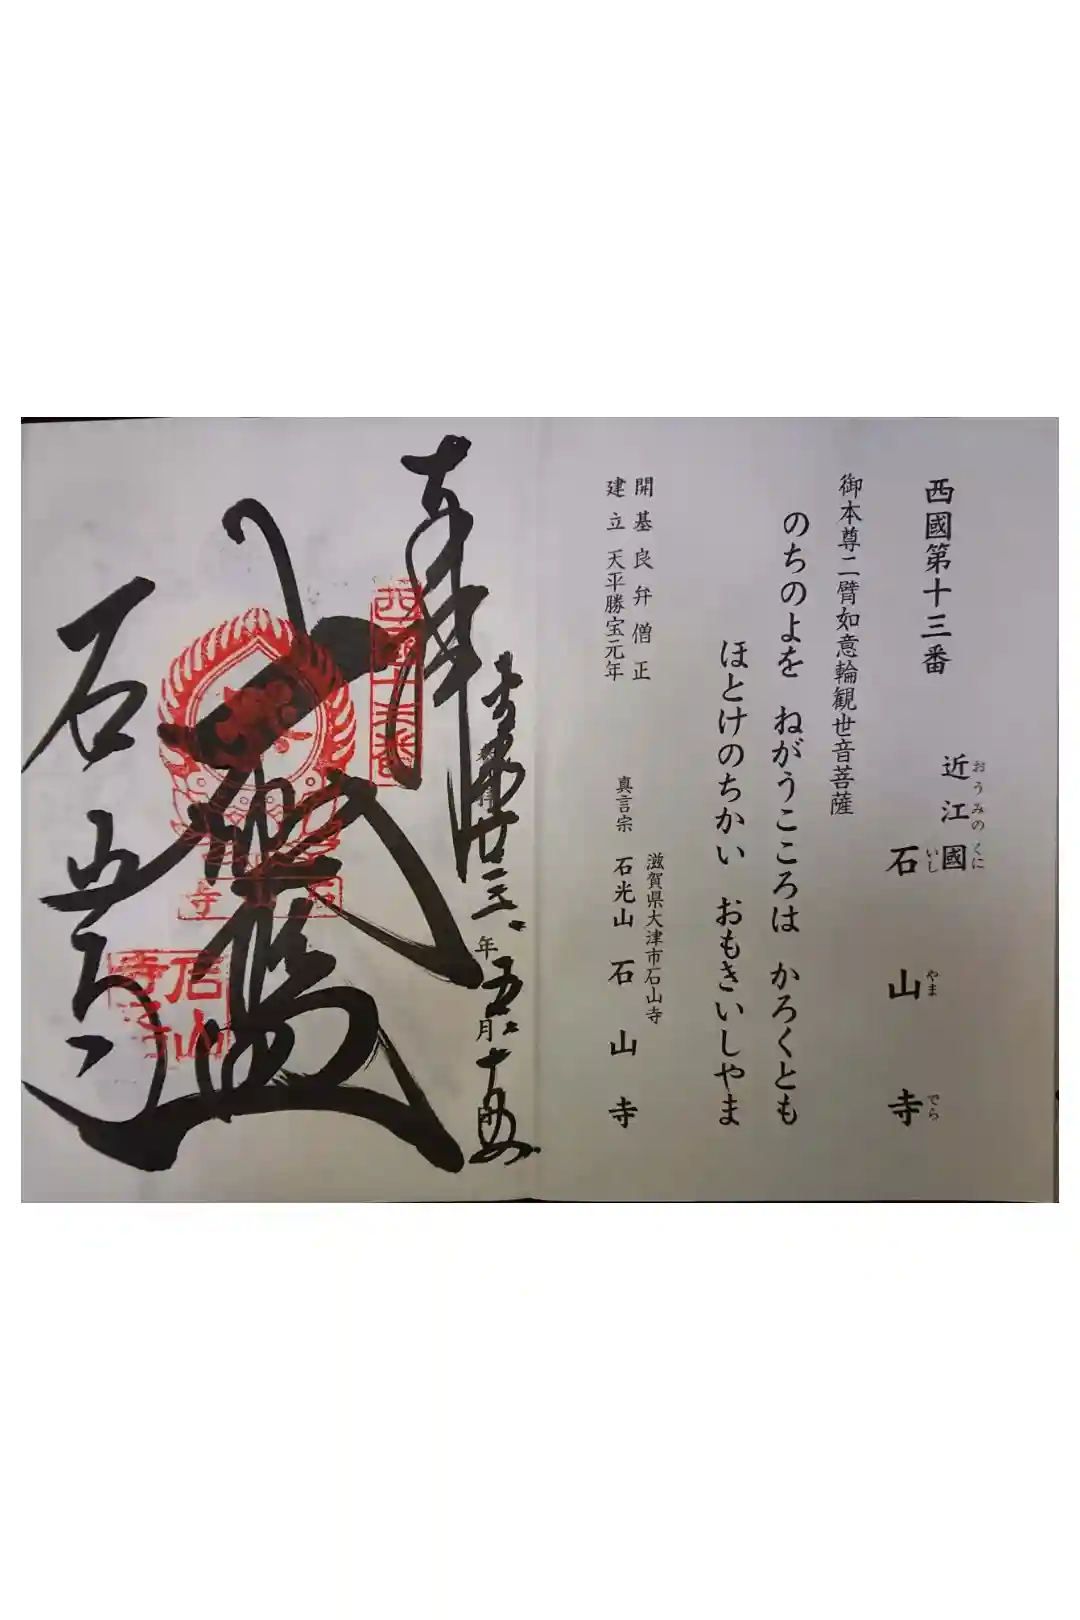 西國第十三番
近江國
おうみのくに
石山寺
いしやまでら
御本尊二臂如意輪観世音菩薩
のちのよを ねがうこころは かろくとも
ほとけのちかい おもきいしやま
開基良弁僧正
建立 天平勝宝元年
滋賀県大津市石山寺
真言宗 石光山 石山寺
奉拝
平成廿三年五月十四日
西国十三番
大悲殿
石山寺
石山寺
石山寺之印